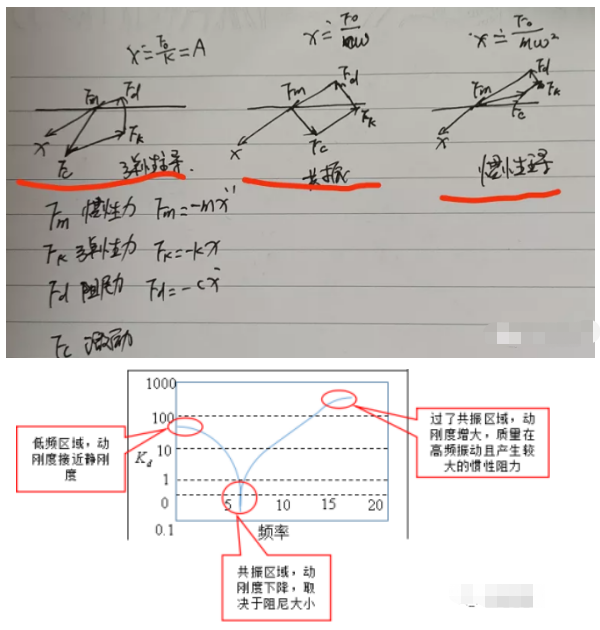 x ≐ F₀/k = A
x ≐ F₀/mω
x ≐ F₀/mω²
Fm Fd Fk x Fc
Fm Fd Fk x Fc
Fm Fd Fk x Fc
弹性主导.
共振
惯性主导
Fm 惯性力 Fm=-mẍ
Fk 弹性力 Fk=-kx
Fd 阻尼力 Fd=-cẋ
Fc 激励
1000
100
10
1
0
0.1
Kd
5 10 15 20
频率
低频区域,动
刚度接近静刚
度
过了共振区域,动
刚度增大,质量在
高频振动且产生较
大的惯性阻力
共振区域,动
刚度下降,取
决于阻尼大小